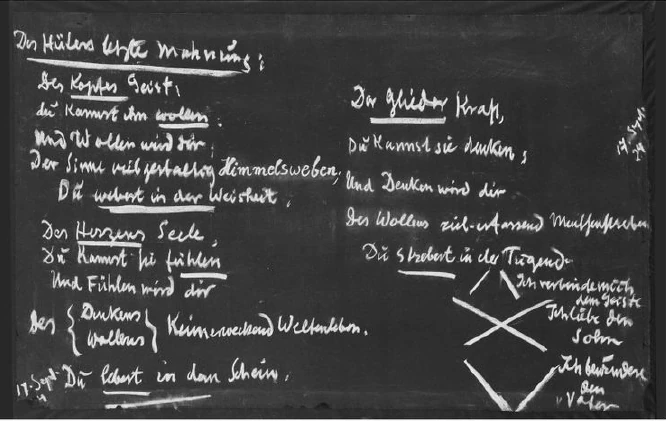 Des Hüters letzte Mahnung:
Des Kopfes Geist,
du kannst ihn wollen;
Und Wollen wird dir;
Der Sinne vielgestaltig Himmelsweben;
Du webest in der Weisheit.
Des Herzens Seele,
Du kannst sie fühlen
Und Fühlen wird dir
Des { Denkens
Wollens } Keimerweckend Weltenleben.
Du lebest in dem Schein.
17. Sept.
Der Glieder Kraft,
Du kannst sie denken;
Und Denken wird dir
Des Wollens ziel-erfassend Menschenstreben
Du strebest in der Tugend
Ich verbinde mich
dem Geiste
Ich lebe den
Sohn
Ich bewundere
den
Vater
17. Sept.
24